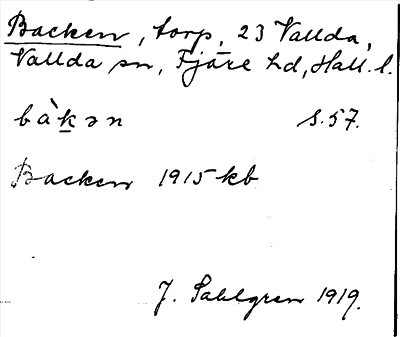 Backen, torp, 23 Vallda,
Vallda sn, Fjäre hd, Hall. l.
bàk̲ən s. 57.
Backen 1915 kb
J. Sahlgren 1919.